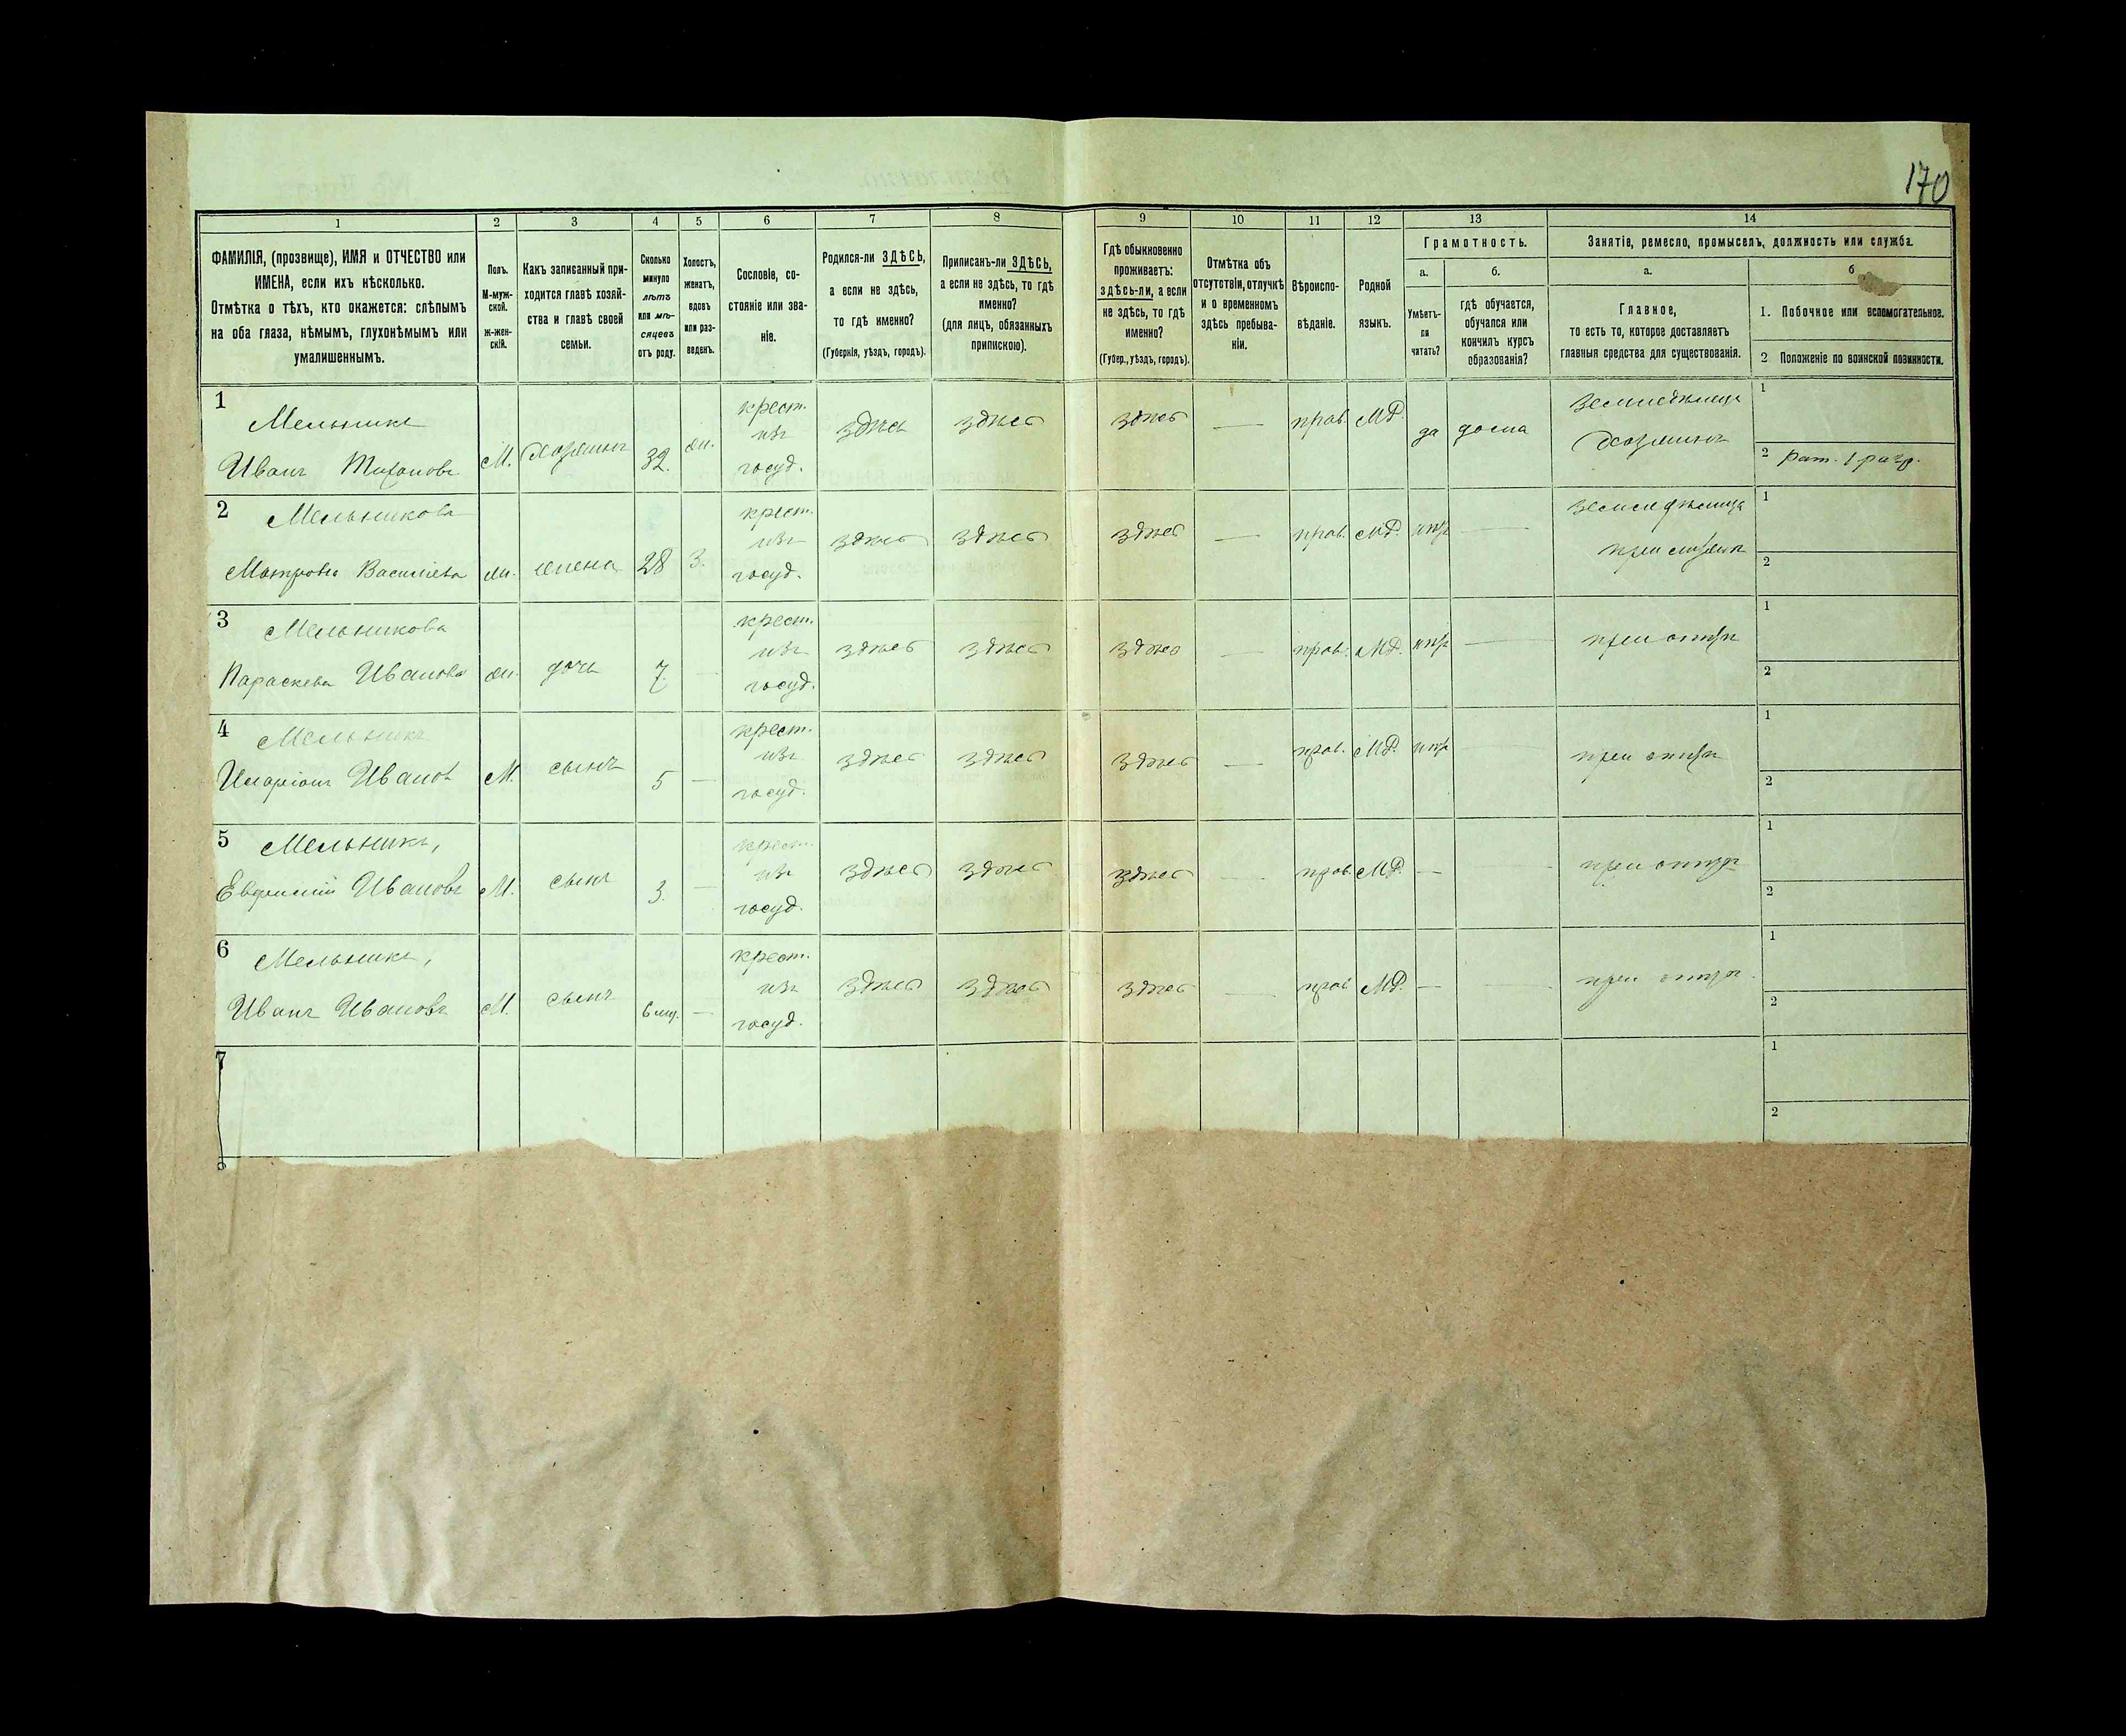 170
1 2 3 4 5 6 7 8 9 10 11 12 13 14
ФАМИЛІЯ, (прозвище), ИМЯ и ОТЧЕСТВО или
ИМЕНА, если ихъ нѣсколько.
Отмѣтка о тѣхъ, кто окажется: слѣпымъ
на оба глаза, нѣмымъ, глухонѣмымъ или
умалишеннымъ.
Полъ.
М-муж-
ской.
ж-жен-
скій.
Какъ записанный при-
ходится главѣ хозяй-
ства и главѣ своей
семьи.
Сколько
минуло
лѣтъ
или мѣ-
сяцевъ
отъ роду.
Холостъ,
женатъ,
вдовъ
или раз-
веденъ.
Сословіе, со-
стояніе или зва-
ніе.
Родился-ли ЗДѢСЬ,
а если не здѣсь,
то гдѣ именно?
(Губернія, уѣздъ, городъ).
Приписанъ-ли ЗДѢСЬ,
а если не здѣсь, то гдѣ
именно?
(для лицъ, обязанныхъ
припискою).
Гдѣ обыкновенно
проживаетъ:
здѣсь-ли, а если
не здѣсь, то гдѣ
именно?
(Губер., уѣздъ, городъ).
Отмѣтка объ
отсутствіи, отлучкѣ
и о временномъ
здѣсь пребыва-
ніи.
Вѣроиспо-
вѣданіе.
Родной
языкъ.
Грамотность.
а.
Умѣетъ-
ли
читать?
б.
гдѣ обучается,
обучался или
кончилъ курсъ
образованія?
Занятіе, ремесло, промыселъ, должность или служба.
а.
Главное,
то есть то, которое доставляетъ
главныя средства для существованія.
б
1. Побочное или вспомогательное.
2 Положеніе по воинской повинности.
1 Мельникъ
Иванъ М. хозяинъ 32. ж. крест. изъ госуд. здѣсь здѣсь здѣсь — прав. да дома
Хозяинъ
1
2 рат. 1 разр.
2 Мельникова
Матрона Василіева ж. жена 28 з. крест. изъ госуд. здѣсь здѣсь здѣсь — прав. —
1
2
3 Мельникова
Параскева Иванова ж. дочь 7. — крест. изъ госуд. здѣсь здѣсь здѣсь — прав. — при
1
2
4 Мельникъ
Иларіонъ Ивановъ М. сынъ 5 — крест. изъ госуд. здѣсь здѣсь здѣсь — прав. при
1
2
5 Мельникъ,
Евфимій Ивановъ М. сынъ 3. — крест. изъ госуд. здѣсь здѣсь здѣсь — прав. — при
1
2
6 Мельникъ,
Иванъ Ивановъ М. сынъ — крест. изъ госуд. здѣсь здѣсь здѣсь — прав. — при
1
2
7
1
2